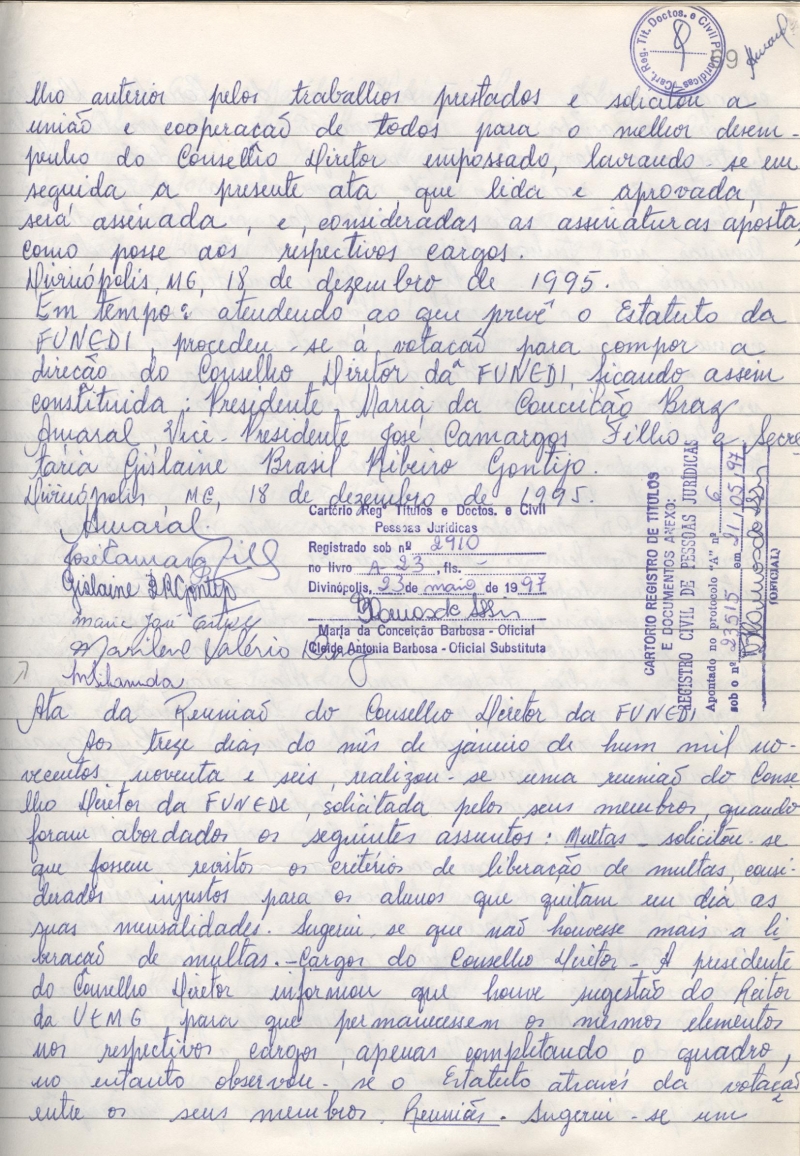 Cart. Reg. Tit. Doctos. e Civil P. Jurídicas
99
Amaral
lho anterior pelos trabalhos prestados e solicitou a
união e cooperação de todos para o melhor desem-
penho do Conselho Diretor empossado, lavrando-se em
seguida a presente ata, que lida e aprovada,
será assinada, e, consideradas as assinaturas apostas,
como posse aos respectivos cargos.
Divinópolis, MG, 18 de dezembro de 1995.
Em tempo: atendendo ao que prevê o Estatuto da
FUNEDI, procedeu-se à votação para compor a
direção do Conselho Diretor da FUNEDI, ficando assim
constituida: Presidente, Maria da Conceição Braz
Amaral, Vice-Presidente José Camargos Filho e Secre
taria Gislaine Brasil Ribeiro Gontijo.
Divinópolis, MG, 18 de dezembro de 1995.
Amaral.
José Camargos Filho
Gislaine BRGontijo
Marilene Valério
Cartório Regº Títulos e Doctos. e Civil
Pessoas Jurídicas
Registrado sob nº 2910
no livro A-23, fls. -
Divinópolis, 23 de maio de 1997
Maria da Conceição Barbosa - Oficial
Cleide Antonia Barbosa - Oficial Substituta
CARTORIO REGISTRO DE TITULOS
E DOCUMENTOS ANEXO:
REGISTRO CIVIL DE PESSOAS JURÍDICAS
Apontado no protocolo "A" nº 6
sob o nº 23515 em 21,05,97
(OFICIAL)
Ata da Reunião do Conselho Diretor da FUNEDI
Aos treze dias do mês de janeiro de hum mil no-
vecentos, noventa e seis, realizou-se uma reunião do Conse
lho Diretor da FUNEDI, solicitada pelos seus membros, quando
foram abordados os seguintes assuntos: Multas - solicitou-se
que fossem revistos os critérios de liberação de multas, consi-
derados injustos para os alunos que quitam em dia as
suas mensalidades. Sugeriu-se que não houvesse mais a li
beração de multas. - Cargos do Conselho Diretor - A presidente
do Conselho Diretor informou que houve sugestão do Reitor
da UEMG para que permanecessem os mesmos elementos
nos respectivos cargos, apenas completando o quadro,
no entanto observou-se o Estatuto através da votação
entre os seus membros. Reuniões - Sugeriu-se um